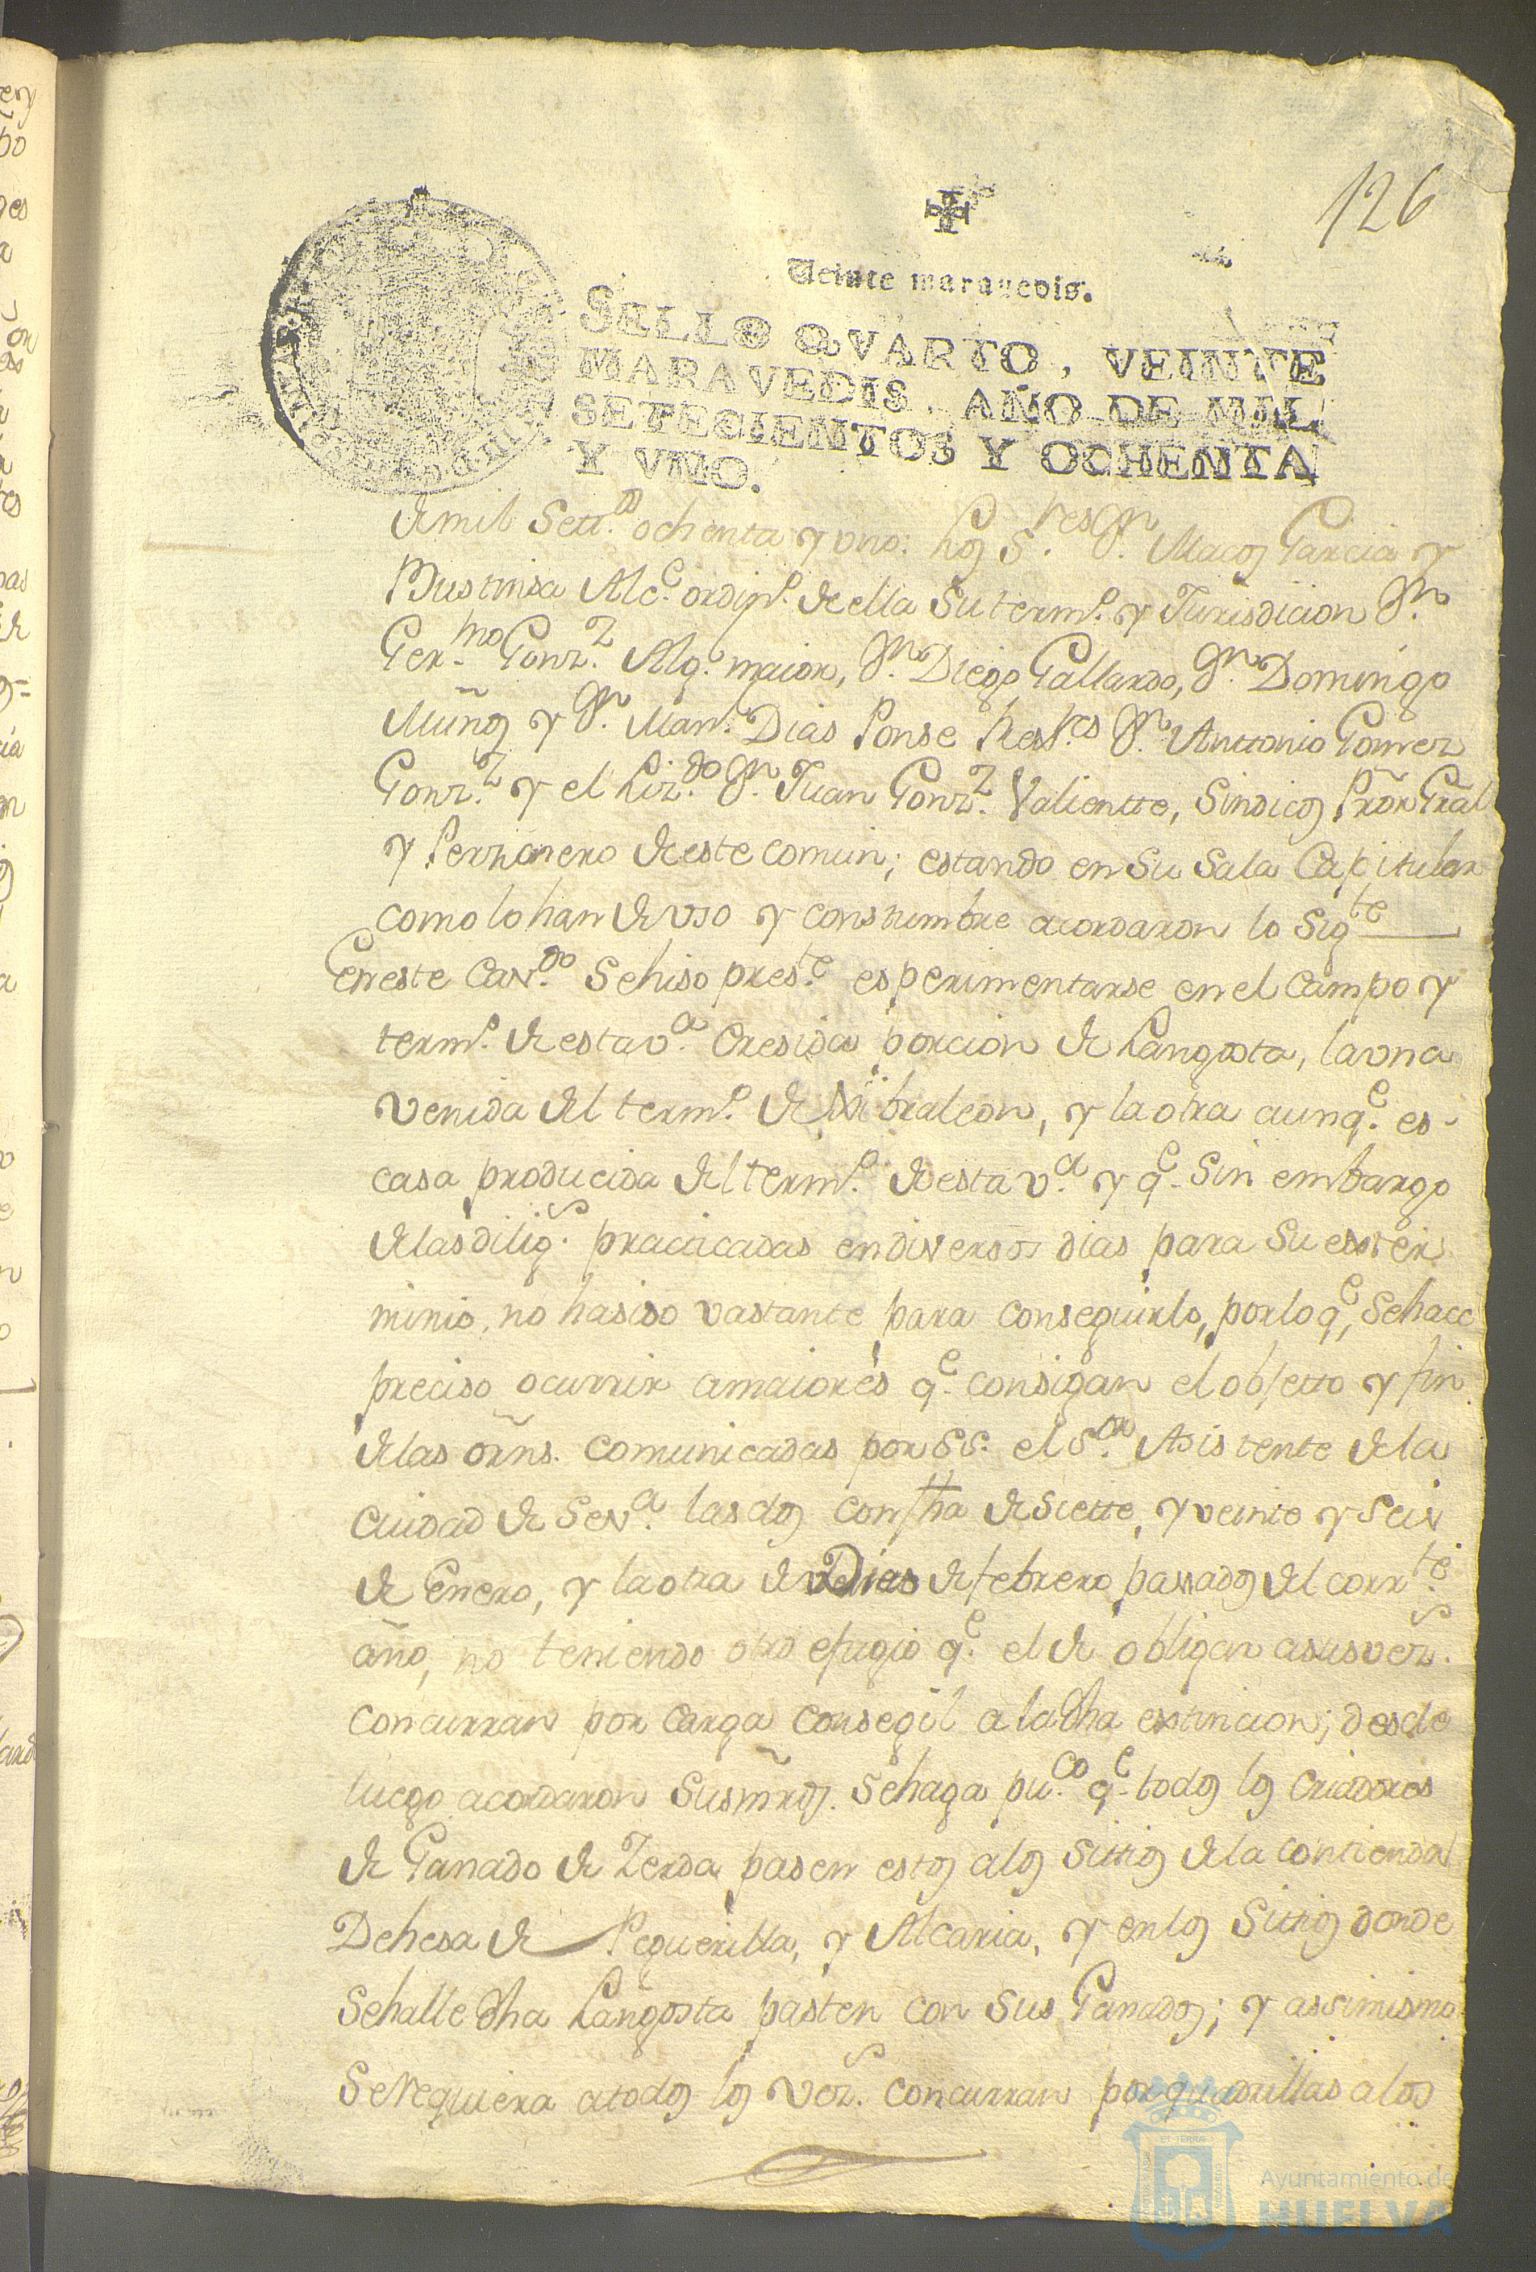 126
Veinte maravedis.
SELLO QVARTO, VEINTE
MARAVEDIS, AÑO DE MIL
SETECIENTOS Y OCHENTA
Y VNO.
de mil Sett.os ochenta y uno: los S.res Dn. Marcos Garcia y
Bustinsa Alc.e ordin.o de ella su term.o y Jurisdicion Dn.
Ger.mo Gonz.z Alg.l maior, Dn. Diego Gallardo, Dn. Domingo
Muñoz y Dn. Man.l Dias Ponse Rex.res Dn. Anttonio Gomez
Gonz.z y el Liz.do Dn. Juan Gonz.z Valientte, Sindicos Prõr Grãl
y Perzonero de este comun; estando en su Sala Capitular
como lo han de uso y constumbre acordaron lo sig.te
En este Cav.do Se hiso pres.te esperimentarse en el campo y
term.o de esta v.a Cresida porcion de Langosta, la una
venida del term.o de Xibraleon, y la otra aunq.e es-
casa producida del term.o de esta v.a y q.e Sin embargo
de las dilig.s practicadas en diversos dias para su exter
minio, no ha sido vastante para conseguirlo, por lo q.e Se hace
preciso ocurrir a maiores q.e consigan el objetto y fin
de las orñs. comunicadas por SS. el S.or Asistente de la
Ciudad de Sev.a las dos con fha de Siette, y veinte y Seis
de Enero, y la otra de Dies de febrero passados del corr.te
año, no teniendo otro efugio q.e el de obligar a sus vez.s
concurran por carga consegil a la dha extincion; desde
luego acordaron Sus mrñs. Se haga pu.co q.e todos los criadores
de Ganado de Zerda pasen estos a los Sittios de la contienda
Dehesa de Peguerilla, y Alcaria, y en los Sittios donde
Se halle dha Langosta pasten con sus Ganados; y assimismo
Se requiera a todos los vez.s concurran por quadrillas a los
Ayuntamiento de
HUELVA